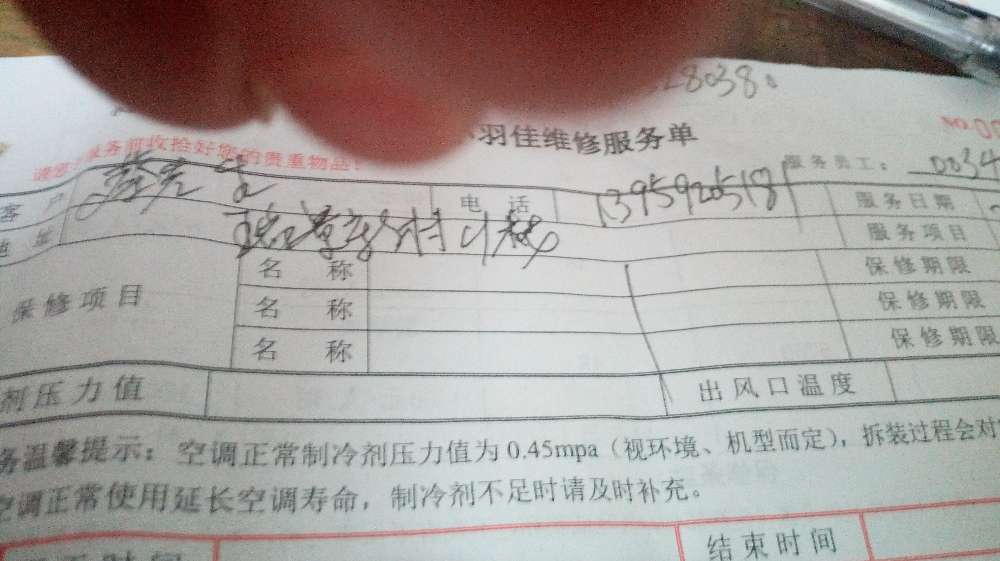 28038.
羽佳维修服务单
NO.00
服务前收拾好您的贵重物品
服务员工：0034
客户 电话 13959205181 服务日期
服务项目
保修项目 名称 保修期限
名称 保修期限
名称 保修期限
剂压力值 出风口温度
务温馨提示：空调正常制冷剂压力值为0.45mpa（视环境、机型而定），拆装过程会对
空调正常使用延长空调寿命，制冷剂不足时请及时补充。
结束时间